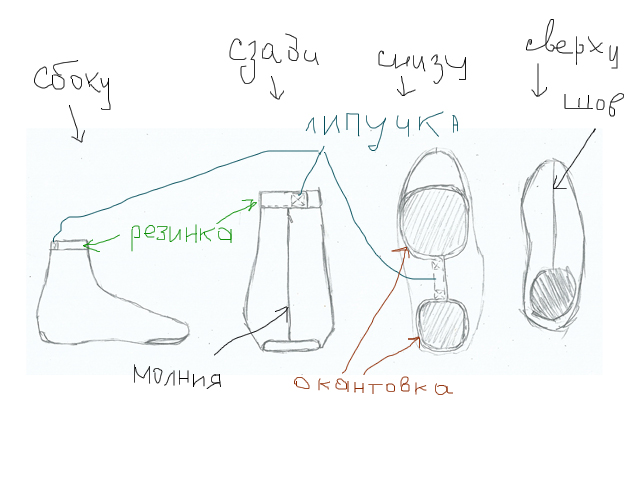 сбоку
сзади
снизу
сверху
шов
липучка
резинка
молния
окантовка